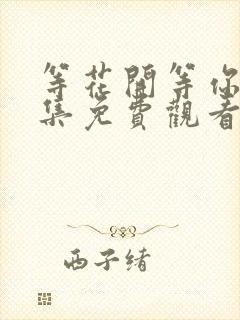 等花開等你
集免費觀看
西子緒